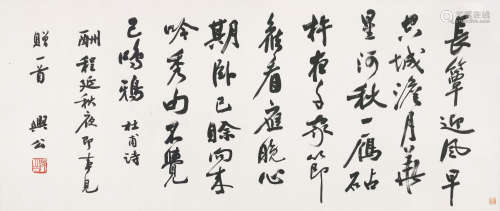 長簟迎風早
空城澹月華
星河秋一鴈砧
杵夜千家節
候看應晚心
期卧已賒向来
吟秀句不覺
已鳴鴉 杜甫诗
酬程延秋夜即事見
贈一首 興公